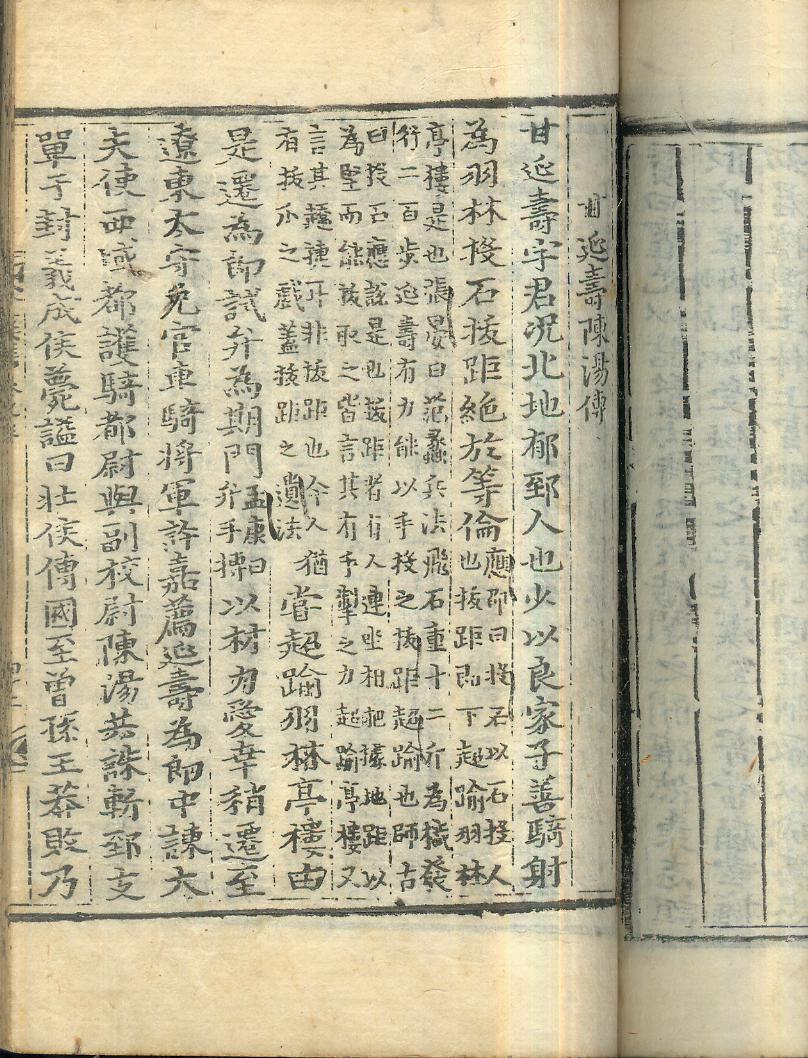 甘延壽陳湯傳
甘延壽字君況北地郁郅人也少以良家子善騎射
為羽林投石拔距絕於等倫應劭曰投石以石投人
也拔距即下超踰羽林
亭樓是也張晏曰范蠡兵法飛石重十二斤為機發
行二百步延壽有力能以手投之拔距超踰也師古
曰投石應說是也拔距者有人連坐相把據地距以
為堅而能拔取之皆言其有手掣之力超踰亭樓又
言其趫捷耳非拔距也今人猶
有拔爪之戲蓋拔距之遺法
嘗超踰羽林亭樓由
是遷為郎試弁為期門孟康曰
弁手搏
以材力愛幸稍遷至
遼東太守免官車騎將軍許嘉薦延壽為郎中諫大
夫使西域都護騎都尉與副校尉陳湯共誅斬郅支
單于封義成侯薨謚曰壯侯傳國至曾孫王莽敗乃